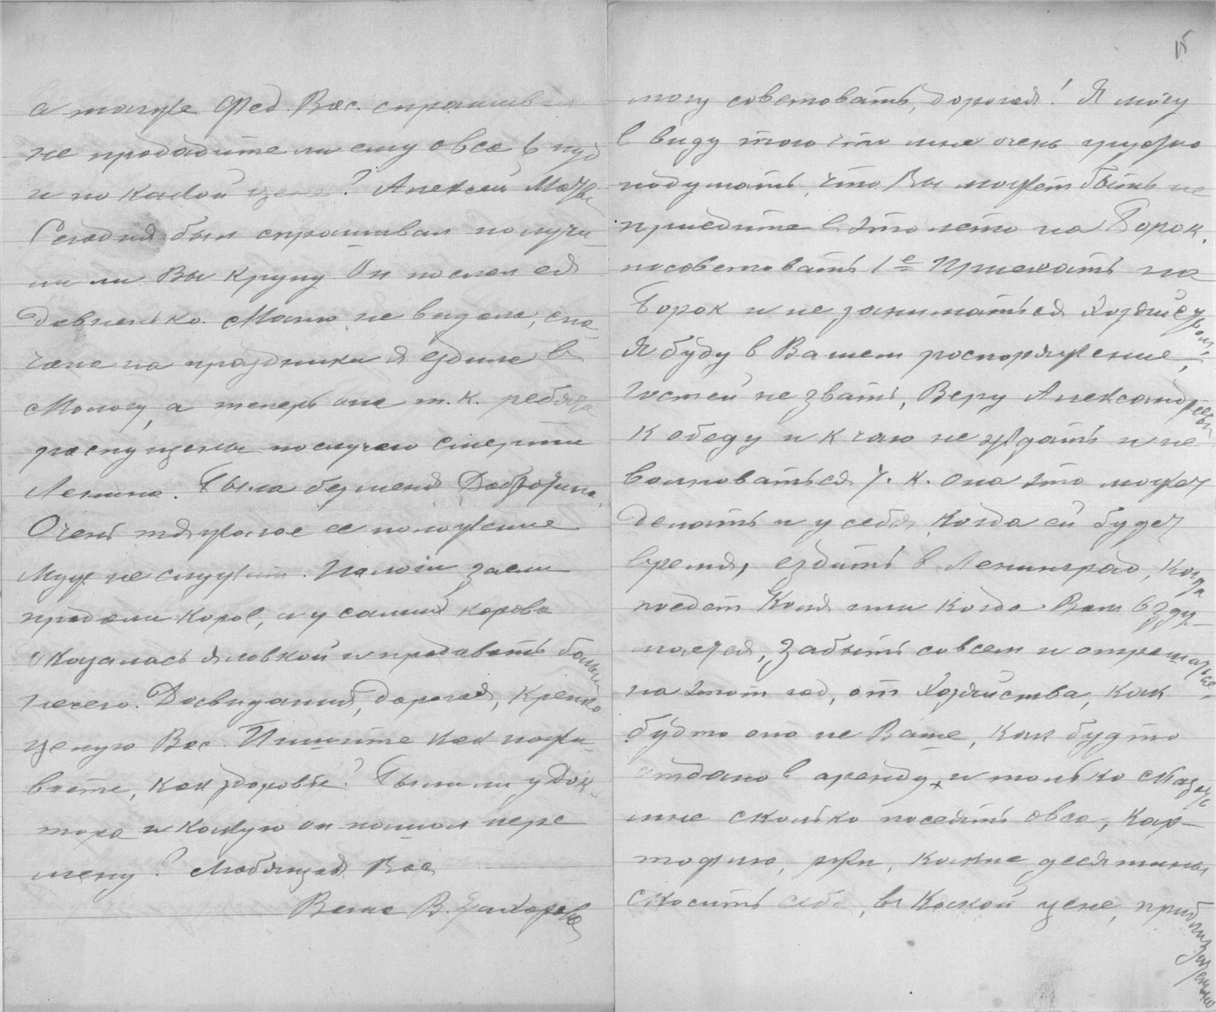 а также Фед. Вас. спрашив
не продадите ли ему овса 6 пуд
и по какой цене? Алексей Матв.
Сегодня был спрашивал получи-
ли ли Вы крупу Он послал её
давненько. Маню не видела, сна
чала на праздники я ездила в
Мологу, а теперь она т. к. ребята
распущены по случаю смерти
Ленина. Была у меня
Очень тяжолое ее положение
Муж не служит.
продали коров, и у самих корова
Оказалась яловкой и продавать больше
нечего. Досвидания, дорогая, крепко
целую Вас. Пишите как пожи-
ваете, как здоровье? Были ли у Док-
тора и какую он нашол пере
мену? Любящая Вас
Ваша В.
15
могу советовать, дорогая! Я могу
в виду того что мне очень грустно
подумать, что Вы может быть не
приедите в это лето на Борок,
посоветовать 1е Приехать на
Борок и не заниматься хозяйством
Я буду в Вашем роспоряжение,
Гостей не звать, Веру Александровну
к обеду и к чаю не ждать и не
волноваться т. к. она это может
делать и у себя когда ей будет
время, ездить в Ленинград, когда
поедет Коля или когда Вам взду-
мается, забыть совсем и отрешиться
на этот год, от хозяйства, как
будто оно не Ваше, как будто
отдано в аренду, и только сказать
мне сколько посеять овса, кар-
тофлю, ржи, какие десятины
скосить себе, в какой цене, приблизительно